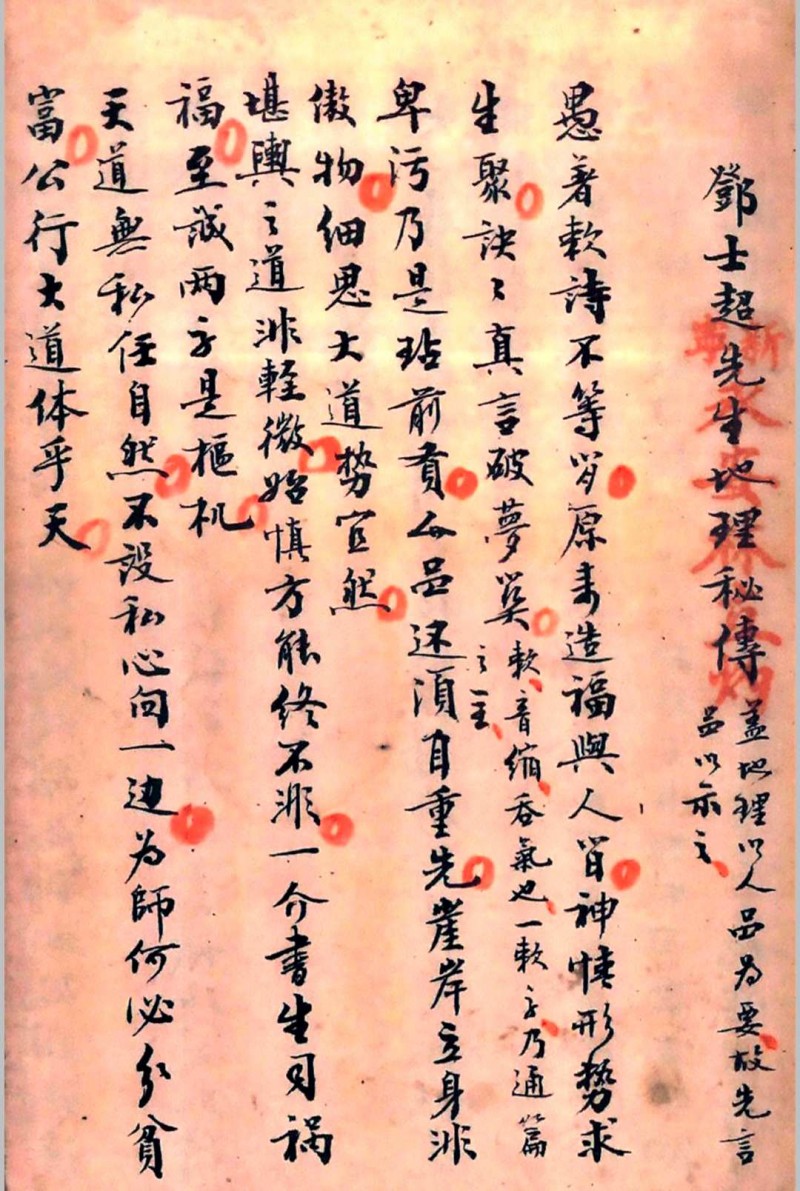 鄧士超先生地理秘傳
蓋地理以人品為要故先言
品以示之
愚著欬詩不等閑原来造福與人間神情形勢求
生聚訣訣真言破夢奠
欬音縮吞氣也一欬字乃通篇
之主
卑污乃是玷前賢人品还須自重先崖岸立身非
傲物細思大道势宜然
堪輿之道非輕微始慎方能終不非一介書生司禍
福至诚两字是樞机
天道無私任自然不設私心向一边為師何必分貧
富公行大道体乎天